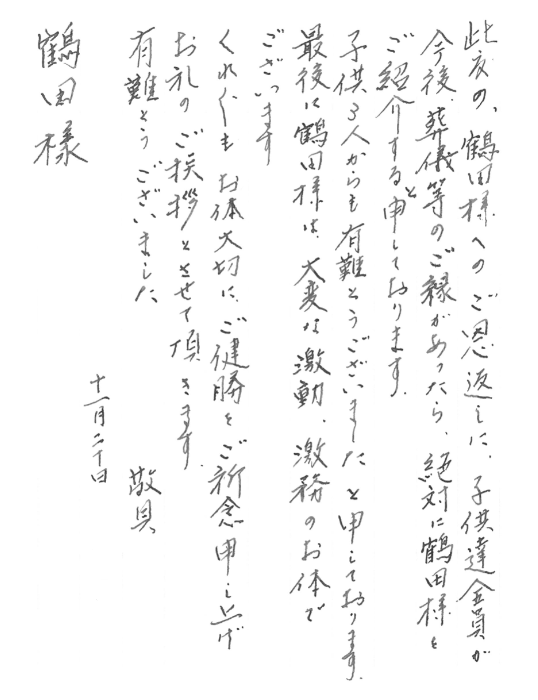 此度の、鶴田様へのご恩返しに、子供達全員が
今後、葬儀等のご縁があったら、絶対に鶴田様を
ご紹介すると申しております。
子供3人からも有難とうございましたと申しております。
最後に鶴田様は、大変な激動、激務のお体で
ございます
くれぐもお体大切に、ご健勝をご祈念申し上げ
お礼のご挨拶とさせて頂きます。
有難とうございました
敬具
十一月二十日
鶴田様